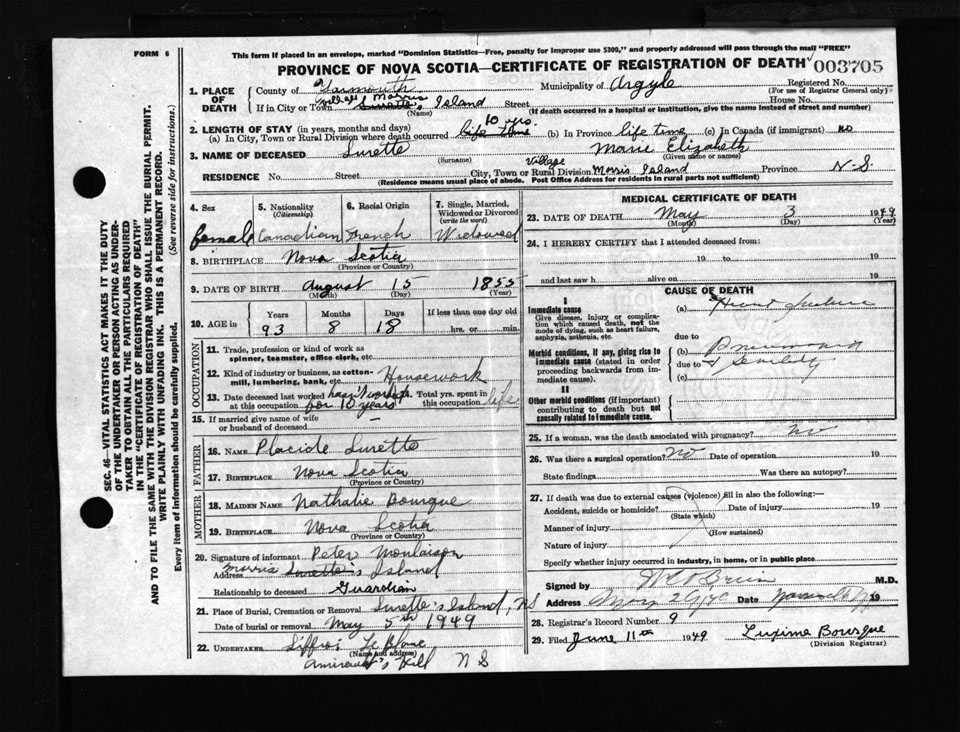 FORM 6
This form if placed in an envelope, marked "Dominion Statistics—Free, penalty for improper use $300," and properly addressed will pass through the mail "FREE"
PROVINCE OF NOVA SCOTIA—CERTIFICATE OF REGISTRATION OF DEATH 003705
1. PLACE OF DEATH
County of Yarmouth Municipality of Argyle Registered No.
(For use of Registrar General only)
If in City or Town village Morris Surette's Island Street House No.
(Name) (If death occurred in a hospital or institution, give the name instead of street and number)
2. LENGTH OF STAY (in years, months and days)
(a) In City, Town or Rural Division where death occurred 10 yrs. life time (b) In Province life time (c) In Canada (if immigrant) no
3. NAME OF DECEASED Surette Marie Elizabeth
(Surname) (Given name or names)
RESIDENCE No. Street City, Town or Rural Division Village Morris Island Province N-S.
(Residence means usual place of abode. Post Office Address for residents in rural parts not sufficient)
4. Sex female
5. Nationality (Citizenship) Canadian
6. Racial Origin French
7. Single, Married, Widowed or Divorced (write the word) Widowed
8. BIRTHPLACE Nova Scotia
(Province or Country)
9. DATE OF BIRTH August 15 1855
(Month) (Day) (Year)
10. AGE in Years Months Days If less than one day old
93 8 18 hrs. or min.
OCCUPATION
11. Trade, profession or kind of work as spinner, teamster, office clerk, etc.
12. Kind of industry or business, as cotton-mill, lumbering, bank, etc. Housework
13. Date deceased last worked at this occupation hasn't worked for 10 years Total yrs. spent in this occupation life
15. If married give name of wife or husband of deceased
FATHER
16. NAME Placide Surette
17. BIRTHPLACE Nova Scotia
(Province or Country)
MOTHER
18. MAIDEN NAME Nathalie Bourque
19. BIRTHPLACE Nova Scotia
(Province or Country)
20. Signature of informant Peter Moulaison
Address Morris Surette's Island
Relationship to deceased Guardian
21. Place of Burial, Cremation or Removal Surette's Island, NS
Date of burial or removal May 5th 1949
22. UNDERTAKER LeBlanc
(Name and address)
Amirault's Hill N S
MEDICAL CERTIFICATE OF DEATH
23. DATE OF DEATH May 3 1949
(Month) (Day) (Year)
24. I HEREBY CERTIFY that I attended deceased from:
19 to 19
and last saw h alive on 19
CAUSE OF DEATH
I
Immediate cause
Give disease, injury or complication which caused death, not the mode of dying, such as heart failure, asphyxia, asthenia, etc.
(a) Heart failure
due to
Morbid conditions, if any, giving rise to immediate cause (stated in order proceeding backwards from immediate cause).
(b)
due to senility
(c)
II
Other morbid conditions (if important) contributing to death but not causally related to immediate cause.
25. If a woman, was the death associated with pregnancy? No
26. Was there a surgical operation? No Date of operation 19
State findings Was there an autopsy?
27. If death was due to external causes (violence) fill in also the following:—
Accident, suicide or homicide? Date of injury 19
(State which)
Manner of injury
(How sustained)
Nature of injury
Specify whether injury occurred in Industry, in home, or in public place
Signed by M.D.
Address Date 19
28. Registrar's Record Number 9
29. Filed June 11th 1949 Luxime Bourque
(Division Registrar)
SEC. 46—VITAL STATISTICS ACT MAKES IT THE DUTY OF THE UNDERTAKER OR PERSON ACTING AS UNDERTAKER TO OBTAIN ALL THE PARTICULARS REQUIRED IN THE "CERTIFICATE OF REGISTRATION OF DEATH"
AND TO FILE THE SAME WITH THE DIVISION REGISTRAR WHO SHALL ISSUE THE BURIAL PERMIT.
WRITE PLAINLY WITH UNFADING INK. THIS IS A PERMANENT RECORD.
Every item of information should be carefully supplied. (See reverse side for instructions.)